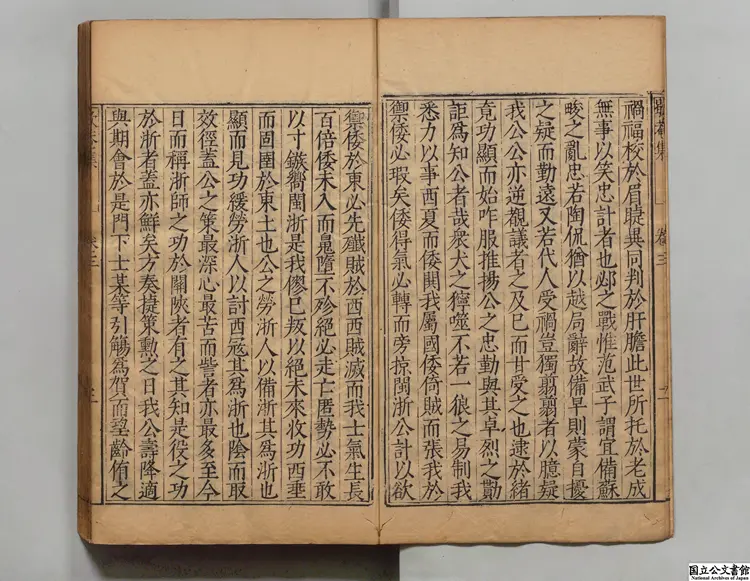 禍福校於眉睫異同判於肝膽此世所托於老成
無事以笑忠計者也邲之戰惟范武子謂宜備蘇
峻之亂忠若陶侃猶以越局辭故備早則蒙自擾
之疑而勤遠又若代人受禍豈獨翦翦者以臆疑
我公公亦逆覩議者之及已而甘受之也逮於緒
竟功顯而始咋服推揚公之忠勤與其卓烈之勳
詎爲知公者哉衆犬之獰噬不若一狼之易制我
悉力以事西夏而倭闖我屬國倭倚賊而張我於
禦倭必瑕矣倭得氣必轉而旁掠閩浙公計以欲
禦倭於東必先殲賊於西西賊滅而我士氣生長
百倍倭未入而鼻墮不殄絕必走亡匿勢必不敢
以寸鏃嚮閩浙是我僇已叛以絕未來收功西垂
而固圉於東土也公之勞浙人以備浙其爲浙也
顯而見功緩勞浙人以討西寇其爲浙也陰而取
效徑蓋公之策最深心最苦而訾者亦最多至今
日而稱浙師之功於關陝者有之其知是役之功
於浙者蓋亦鮮矣方奏捷策勳之日我公壽降適
與期會於是門下士某等引觴爲賀而望齡侑之
卷三
国立公文書館
National Archives of Japan